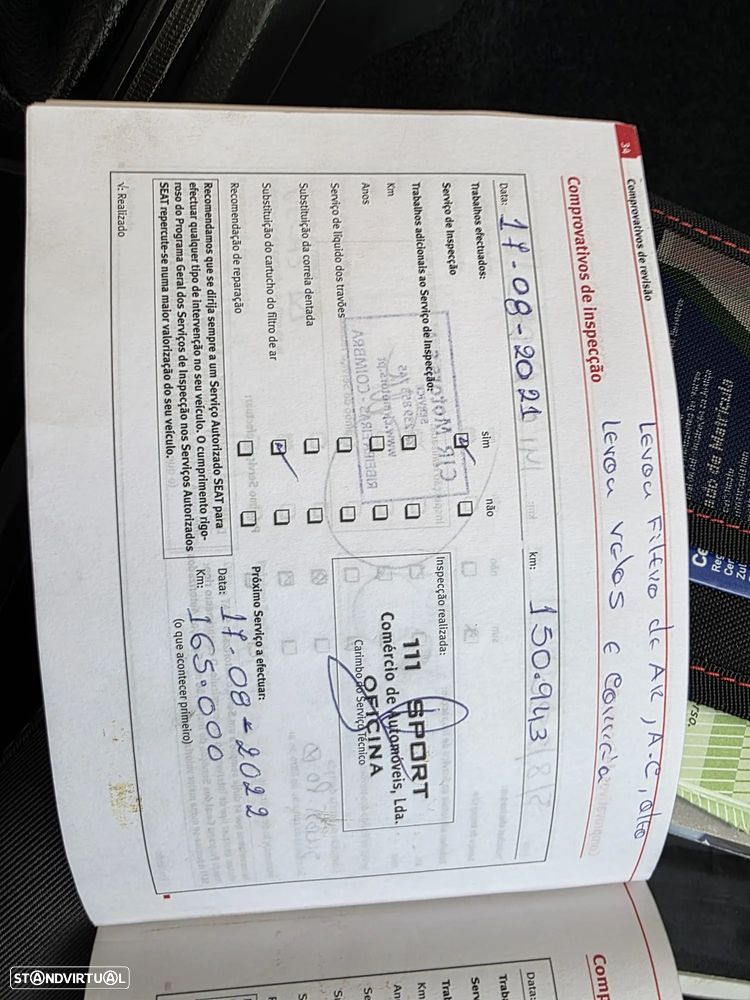 34
Comprovativos de revisão
Levou Filtro de AR, A-C, oleo
Levou velas e correia
Comprovativos de inspecção
Data: 17-08-2021
km: 150.943
Trabalhos efectuados:
sim
não
Serviço de Inspecção
Trabalhos adicionais ao Serviço de Inspecção:
Km
Anos
Serviço de líquido dos travões
Substituição da correia dentada
Substituição do cartucho do filtro de ar
Recomendação de reparação
Inspecção realizada:
111 SPORT
Comércio de Automóveis, Lda.
OFICINA
Carimbo do Serviço Técnico
Recomendamos que se dirija sempre a um Serviço Autorizado SEAT para
efectuar qualquer tipo de intervenção no seu veículo. O cumprimento rigo-
roso do Programa Geral dos Serviços de Inspecção nos Serviços Autorizados
SEAT repercute-se numa maior valorização do seu veículo.
Próximo Serviço a efectuar:
Data: 17-08-2022
Km: 165.000
(o que acontecer primeiro)
√: Realizado
Comp
Data:
Trab
Serv
Trab
Km
An
Se
Su
STANDVIRTUAL